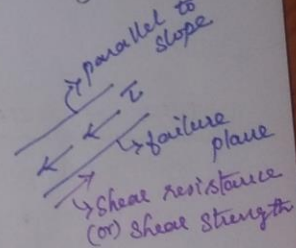 parallel to
slope
τ
failure
plane
Shear resistance
(or) Shear Strength